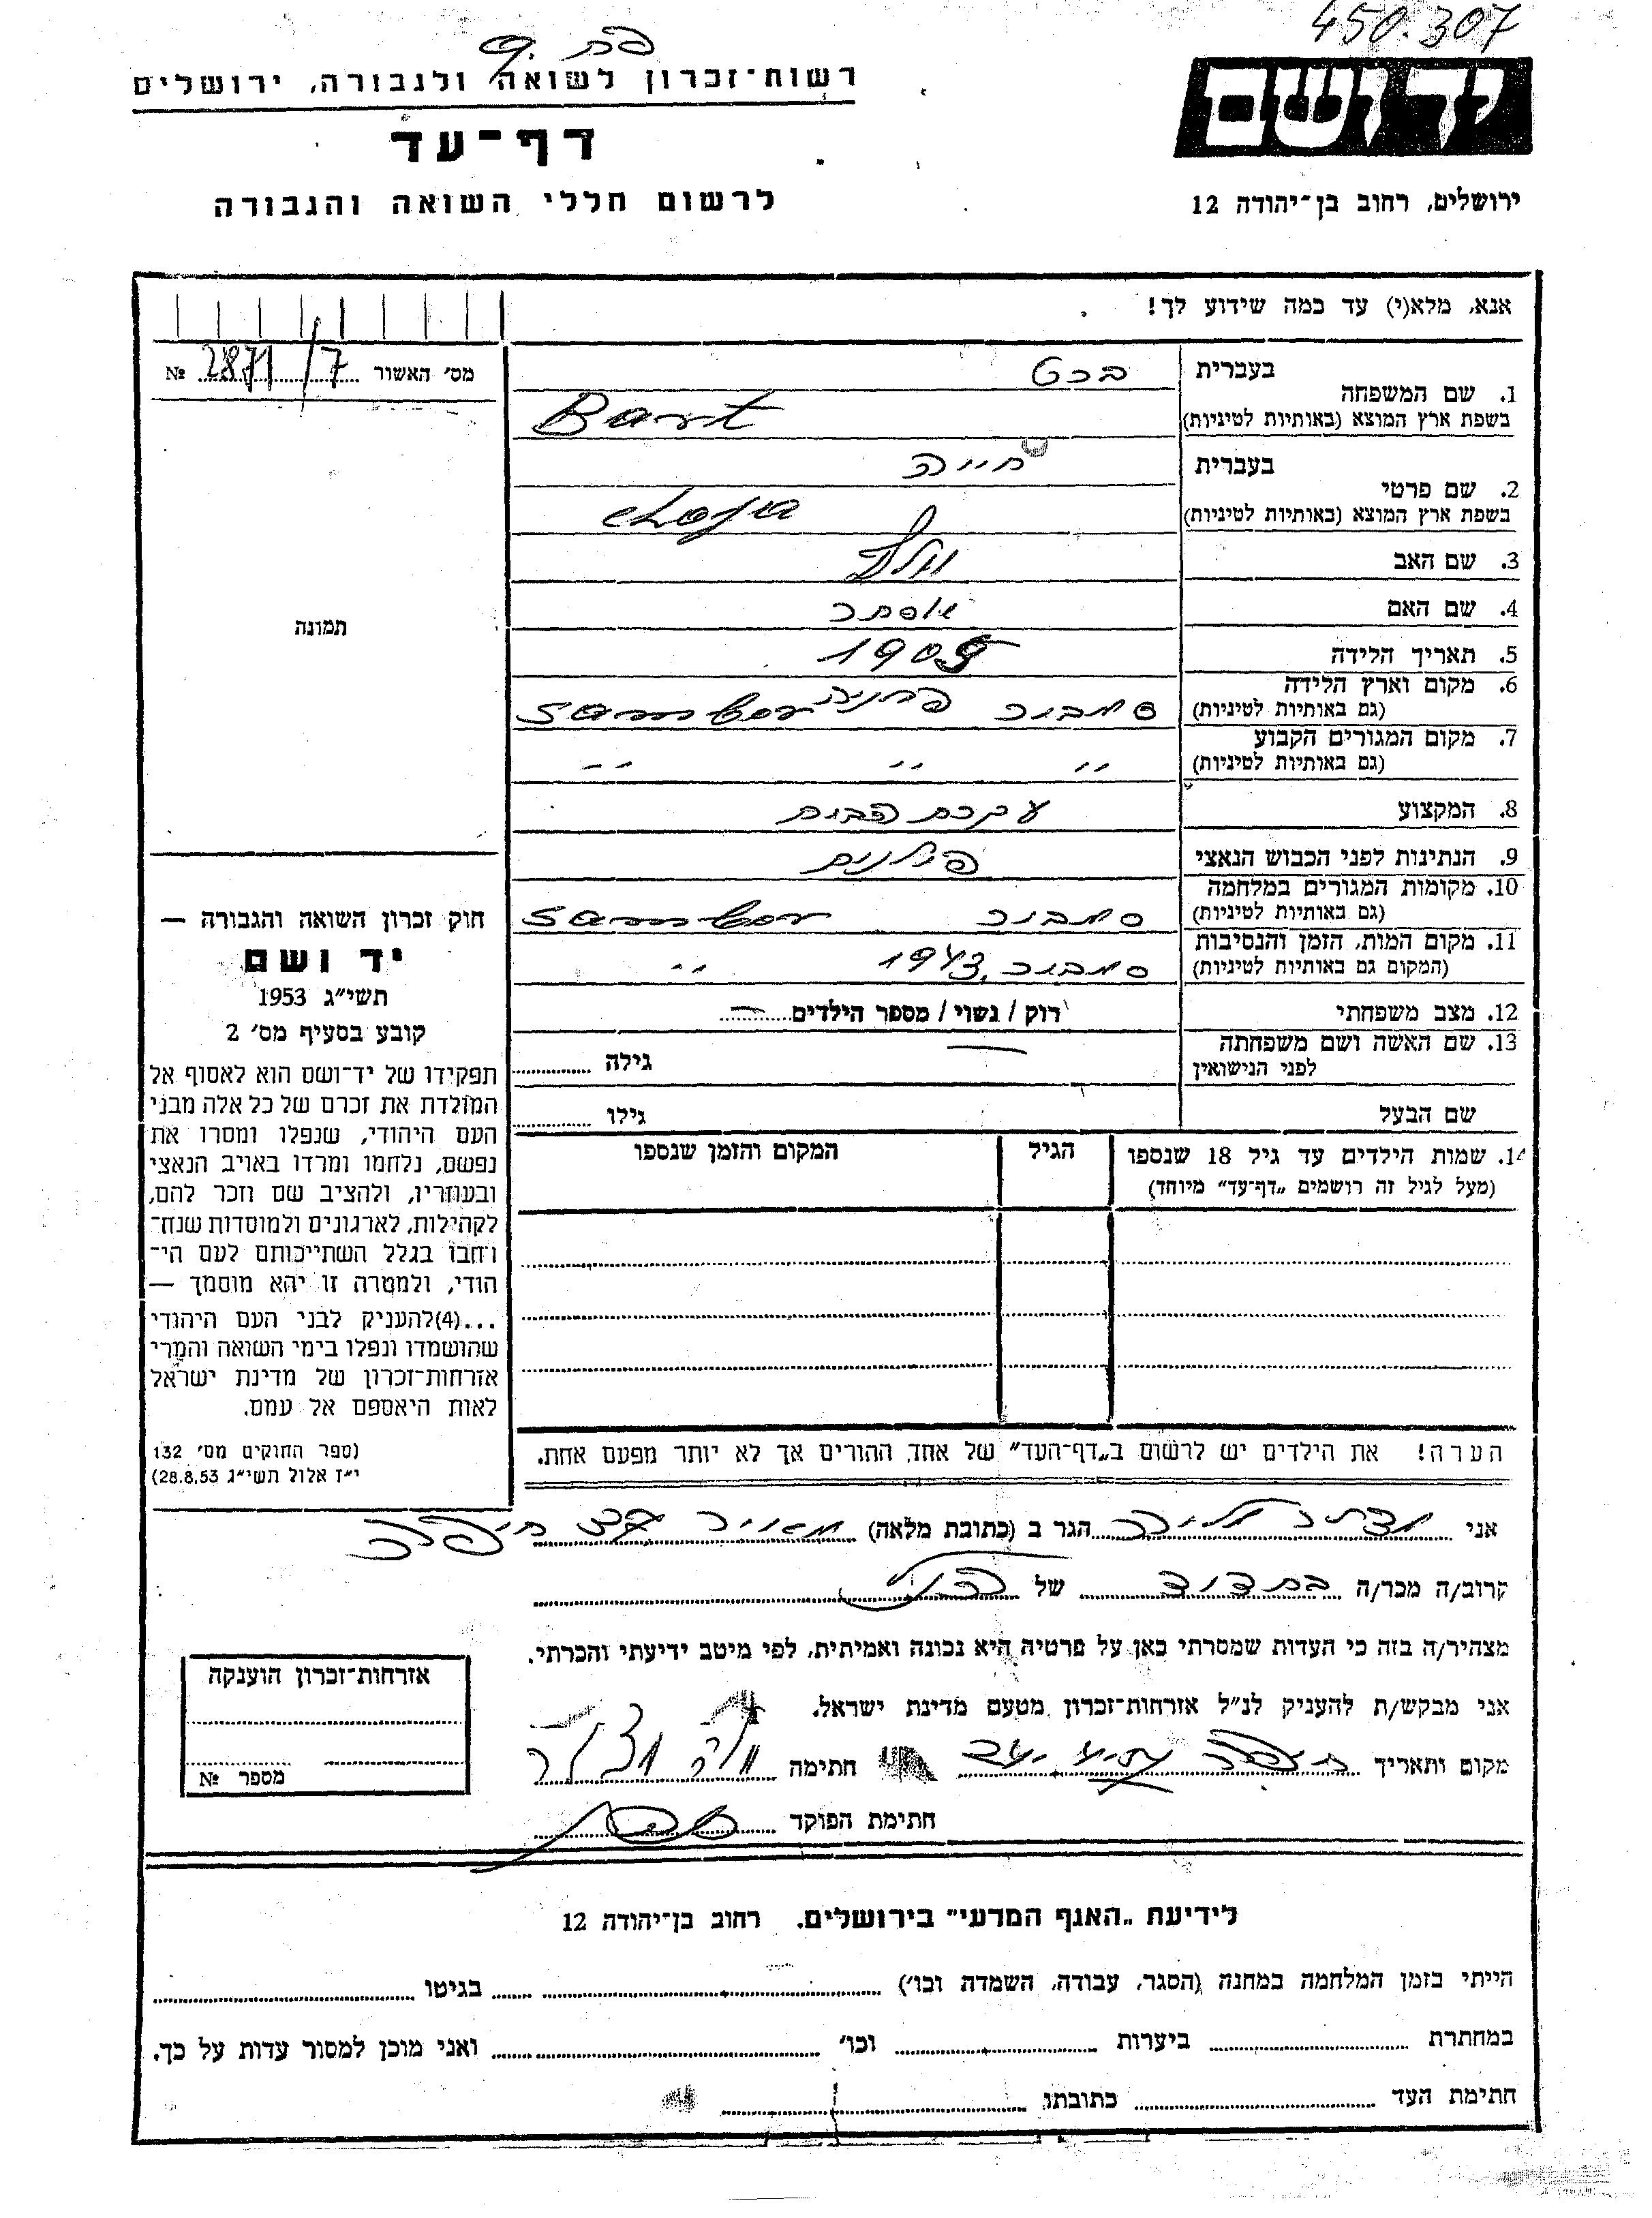 450.307
רשות־זכרון לשואה ולגבורה, ירושלים
יד ושם
דף־עד
לרשום חללי השואה והגבורה
ירושלים, רחוב בן־יהודה 12
אנא, מלא(י) עד כמה שידוע לך!
מס׳ האשור 2871/7 №
1. שם המשפחה
בעברית ברט
בשפת ארץ המוצא (באותיות לטיניות) Bart
2. שם פרטי
בעברית חייה
בשפת ארץ המוצא (באותיות לטיניות) chaja
3. שם האב
4. שם האם אסתר
5. תאריך הלידה 1905
6. מקום וארץ הלידה סמבור פולניה Sambor
(גם באותיות לטיניות)
7. מקום המגורים הקבוע ,, ,, ,,
(גם באותיות לטיניות)
8. המקצוע עקרת הבית
9. הנתינות לפני הכבוש הנאצי פולנית
10. מקומות המגורים במלחמה סמבור Sambor
(גם באותיות לטיניות)
11. מקום המות, הזמן והנסיבות סמבור, 1943 ,,
(המקום גם באותיות לטיניות)
12. מצב משפחתי רוק / נשוי / מספר הילדים —
13. שם האשה ושם משפחתה — גילה
לפני הנישואין
שם הבעל גילו
14. שמות הילדים עד גיל 18 שנספו הגיל המקום והזמן שנספו
(מעל לגיל זה רושמים „דף־עד" מיוחד)
הערה! את הילדים יש לרשום ב„דף־העד" של אחד ההורים אך לא יותר מפעם אחת.
תמונה
חוק זכרון השואה והגבורה —
יד ושם
תשי״ג 1953
קובע בסעיף מס׳ 2
תפקידו של יד־ושם הוא לאסוף אל
המולדת את זכרם של כל אלה מבני
העם היהודי, שנפלו ומסרו את
נפשם, נלחמו ומרדו באויב הנאצי
ובעוזריו, ולהציב שם וזכר להם,
לקהילות, לארגונים ולמוסדות שנח־
רחבו בגלל השתייכותם לעם הי־
הודי, ולמטרה זו יהא מוסמך —
...(4)להעניק לבני העם היהודי
שהושמדו ונפלו בימי השואה והמרי
אזרחות־זכרון של מדינת ישראל
לאות היאספם אל עמם.
(ספר החוקים מס׳ 132
י״ז אלול תשי״ג 28.8.53)
אני הגר ב (כתובת מלאה) חיפה
קרוב/ה מכר/ה בת דוד של
מצהיר/ה בזה כי העדות שמסרתי כאן על פרטיה היא נכונה ואמיתית, לפי מיטב ידיעתי והכרתי.
אני מבקש/ת להעניק לנ״ל אזרחות־זכרון מטעם מדינת ישראל.
מקום ותאריך חיפה חתימה
חתימת הפוקד
אזרחות־זכרון הוענקה
מספר №
לידיעת „האגף המדעי" בירושלים. רחוב בן־יהודה 12
הייתי בזמן המלחמה במחנה (הסגר, עבודה, השמדה וכו׳) בגיטו
במחתרת ביערות וכו׳ ואני מוכן למסור עדות על כך.
חתימת העד כתובתו